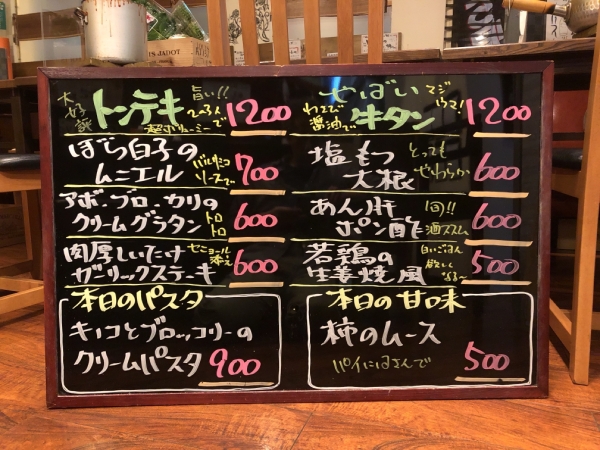 大好評 トンテキ 旨い!! 1200
超ボリューミー
やばい マジウマ!
わさび醤油で 牛タン 1200
ぼら白子の
ムニエル バルサミコソースで 700
塩もつ とっても
大根 やわらか 600
アボ・ブロ・カリの
クリームグラタン トロトロ 600
あん肝 旨!!
ポン酢 酒ススム 600
肉厚しいたけ
ガーリックステーキ 添え 600
若鶏の 白いごはん
生姜焼風 欲しい 500
本日のパスタ
キノコとブロッコリーの
クリームパスタ 900
本日の甘味
柿のムース
パイにはさんで 500